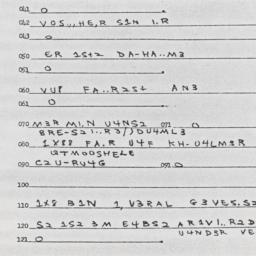 041 O
042 VOS,,HE,R S1N I.R
043 O
050 ER 1S+2 DA-HA..M3
051 O
060 VUP FA..R2S+ AN3
061 O
070 M3R MIN U4NS2 071 O
BRE-S21..R3/)DU4ML3
080 1X88 FA.R U4F KH-U4LM3R
QTMOOSHELE
090 C2U-RU4G 091 O
100
110 1X8 B1N 1,V3RAL G3VES.S2
120 S2 1S2 3M E4BS2 AR1V1..R2D
U4ND3R VE
121 O